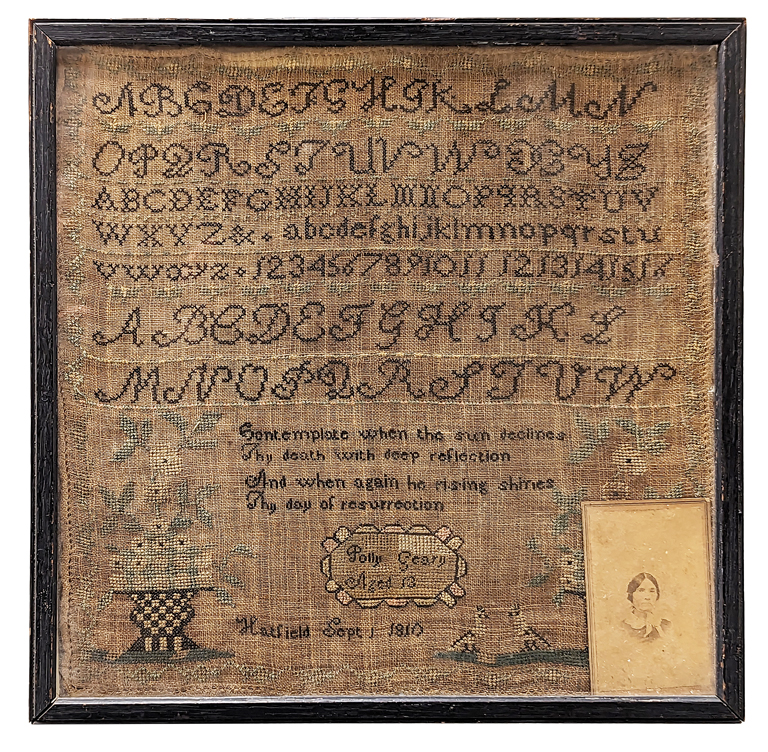 A B C D E F G H I K L M N
O P Q R S T U V W X Y Z
A B C D E F G H I J K L M N O P Q R S T U V
W X Y Z & . a b c d e f g h i j k l m n o p q r s t u
v w x y z . 1 2 3 4 5 6 7 8 9 10 11 12 13 14 15 16
A B C D E F G H I K L
M N O P Q R S T V W
Contemplate when the sun declines
Thy death with deep reflection
And when again he rising shines
Thy day of resurrection
Polly Geary
Aged 13
Hatfield Sept 1 1810